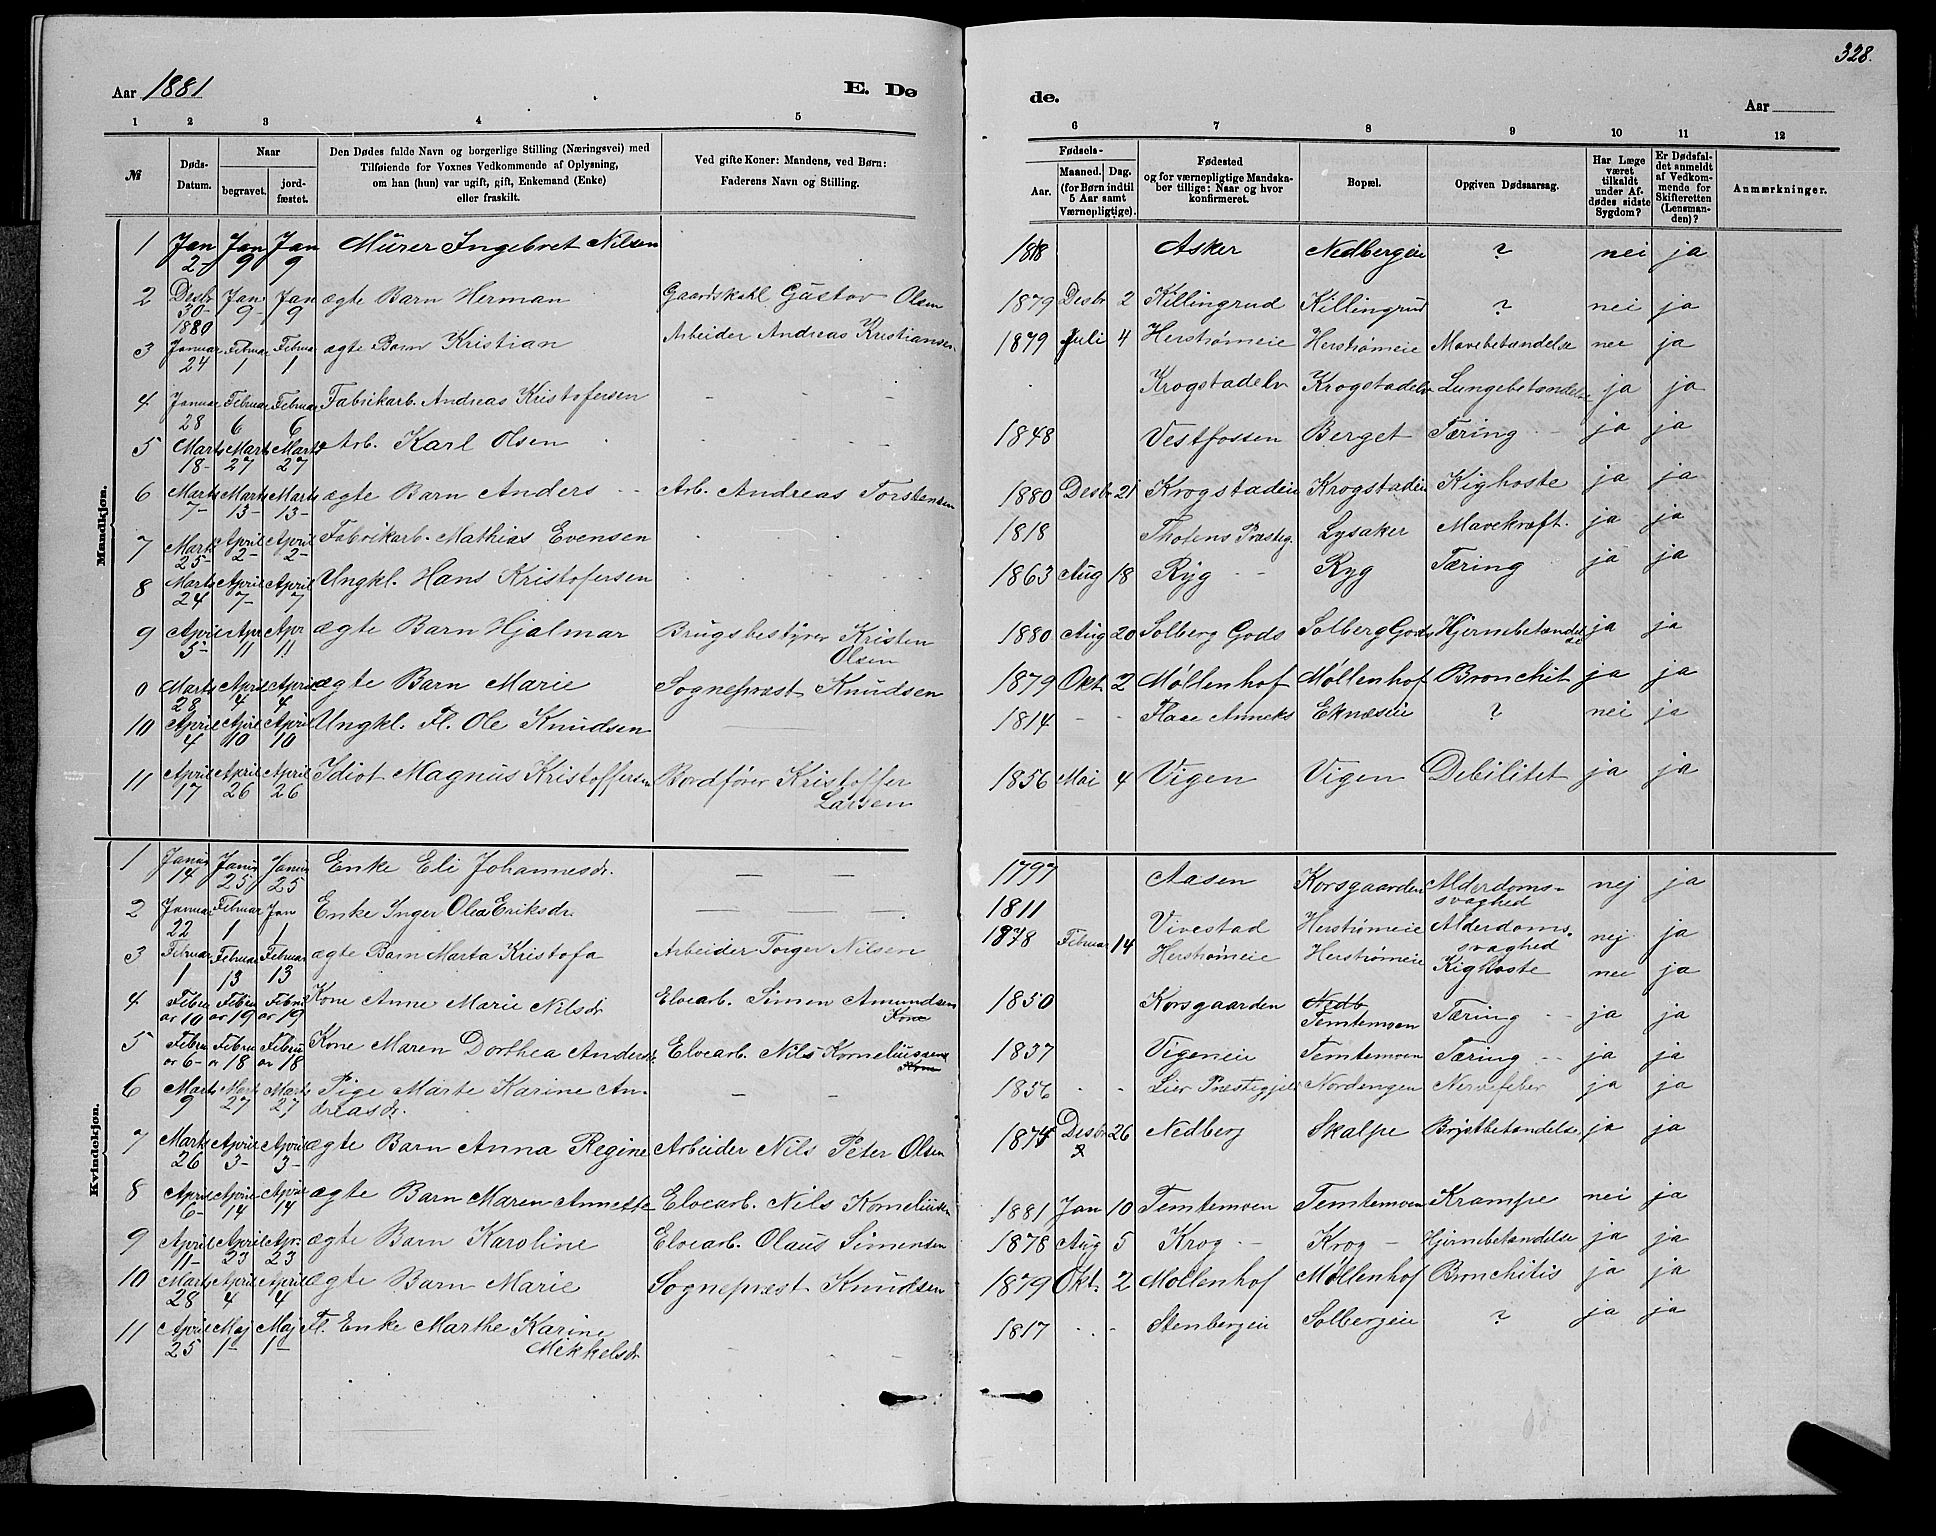 328.
Aar 1881 E. Dø de. Aar
1 2 3 4 5 6 7 8 9 10 11 12
№ Døds-Datum. Naar begravet. jord-fæstet. Den Dødes fulde Navn og borgerlige Stilling (Næringsvei) med Tilføiende for Voxnes Vedkommende af Oplysning, om han (hun) var ugift, gift, Enkemand (Enke) eller fraskilt. Ved gifte Koner: Mandens, ved Børn: Faderens Navn og Stilling. Fødsels- Aar. Maaned. Dag. (for Børn indtil 5 Aar samt Værnepligtige). Fødested og for værnepligtige Mandska-ber tillige: Naar og hvor konfirmeret. Bopæl. Opgiven Dødsaarsag. Har Læge været tilkaldt under Af-dødes sidste Sygdom? Er Dødsfal-det anmeldt af Vedkom-mende for Skifteretten (Lensman-den)? Anmærkninger.
Mandkjøn.
1 Jan 2- Jan 9 Jan 9 Mürer Ingebret Nilsen 1818 Asker Nedbergeie ? nei ja
2 Desbr 30- 1880 Jan 9- Jan 9 ægte Barn Herman Gaardskarl Gustov Olsen 1879 Desbr 2 Killingrud Killingrud ? nei ja
3 Januar 24 Februar 1 Februar 1 ægte Barn Kristian Arbeider Andreas Kristiansen 1879 Juli 4 Herstrømeie Herstrømeie Mavebetændelse nei ja
4 Januar 28 Februar 6 Februar 6 Fabrikarb. Andreas Kristofersen - - - Krogstadelv Krogstadelv Lungebetændelse ja ja
5 Marts 18- Marts 27 Marts 27 Arb. Karl Olsen - - - 1848 Vestfossen Berget Tæring - ja ja
6 Marts 7- Marts 13- Marts 13- ægte Barn Anders - - Arb. Andreas Torstensen 1880 Desbr 21 Krogstadeie Krogstadeie Kighoste ja ja
7 Marts 25- April 2- April 2- Fabrikarb. Mathias Evensen - - - 1818 Thotens Præstig. Lysaker Mavekræft. ja ja
8 Marts 24 April 7- April 7 Ungkl. Hans Kristofersen - - - 1863 Aug 18 Ryg - - Ryg Tæring ja ja
9 April 5- Apr 11 Apr 11 ægte Barn Hjalmar Brugsbestyrer Kristen Olsen 1880 Aug 20 Solberg Gods Solberg Gods Hjernebetændelse ja ja
0 Marts 28 April 4 April 4 ægte Barn Marie Sognepræst Knudsen 1879 Okt 2 Møllenhof Møllenhof Bronchit ja ja
10 April 4 April 10 April 10 Ungkl. Fl. Ole Knudsen 1814 - - Flaae Anneks Eknæseie ? nei ja
11 April 17 April 26 April 26 Idiot Magnus Kristoffersen Bordfører Kristoffer Larsen 1856 Mai 4 Vigen Vigen Debilitet ja ja
Kvindekjøn.
1 Januar 14 Januar 25 Januar 25 Enke Eli Johannesdr. - - 1797 Aasen Korsgaarden Alderdoms-svaghed nej ja
2 Januar 22 Februar 1 Jan 1 Enke Inger Olea Eriksdr. - - - 1811 Vivestad Herstrømeie Alderdoms-svaghed nej ja
3 Februar 1 Februar 13 Februar 13 ægte Barn Marta Kristofa Arbeider Torger Nilsen 1878 Februar 14 Herstrømeie Herstrømeie Kighoste nei ja
4 Febru ar 10 Febru ar 19 Febru ar 19 Kone Anne Marie Nilsdr Elvearb. Simen Amundsen Kone 1850 Korsgaarden Nedb Temtemoen Tæring - - ja ja
5 Febru ar 6- Febru ar 18 Febru ar 18 Kone Maren Dorthea Andersdr. Elvearb. Nils Korneliussens Kone 1837 Vigeneie Temtemoen Tæring - - ja ja
6 Marts 9 Marts 27 Marts 27 Pige Marte Karine An-dreasdr. - - 1856 - - Lier Præstegjeld Nordengen Nervefeber ja ja
7 Marts 26 April 3- April 3- ægte Barn Anna Regine Arbeider Nils Peter Olsen 1874 Desbr 26 Nedberg Skalpe Brystbetændelse ja ja
8 April 6- April 14 April 14 ægte Barn Maren Annette Elvearb. Nils Korneliussen 1881 Jan 10 Temtemoen Temtemoen Krampe nei ja
9 April 11- April 23 Apr. 23 ægte Barn Karoline Elvearb. Olaus Simensen 1878 Aug 5 Krog - - Krog - Hjernebetændelse ja ja
10 Marts 28 April 4 April 4 ægte Barn Marie Sognepræst Knudsen 1879 Okt. 2 Møllenhof Møllenhof Bronchitis ja ja
11 April 25 Maj 1- Maj 1- Fl. Enke Marthe Karine Mekkelsdr - - - 1817 - - Stenbergeie Solbergeie ? ja ja